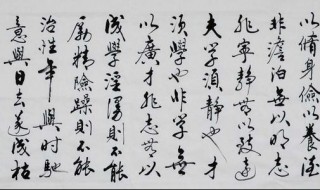 以脩身儉以養德
非澹泊無以明志
非寧靜無以致遠
夫学須靜也才
須學也非学無
以廣才非志無以
成學淫漫則不能
勵精險躁則不能
治性年與時馳
意與日去遂成枯